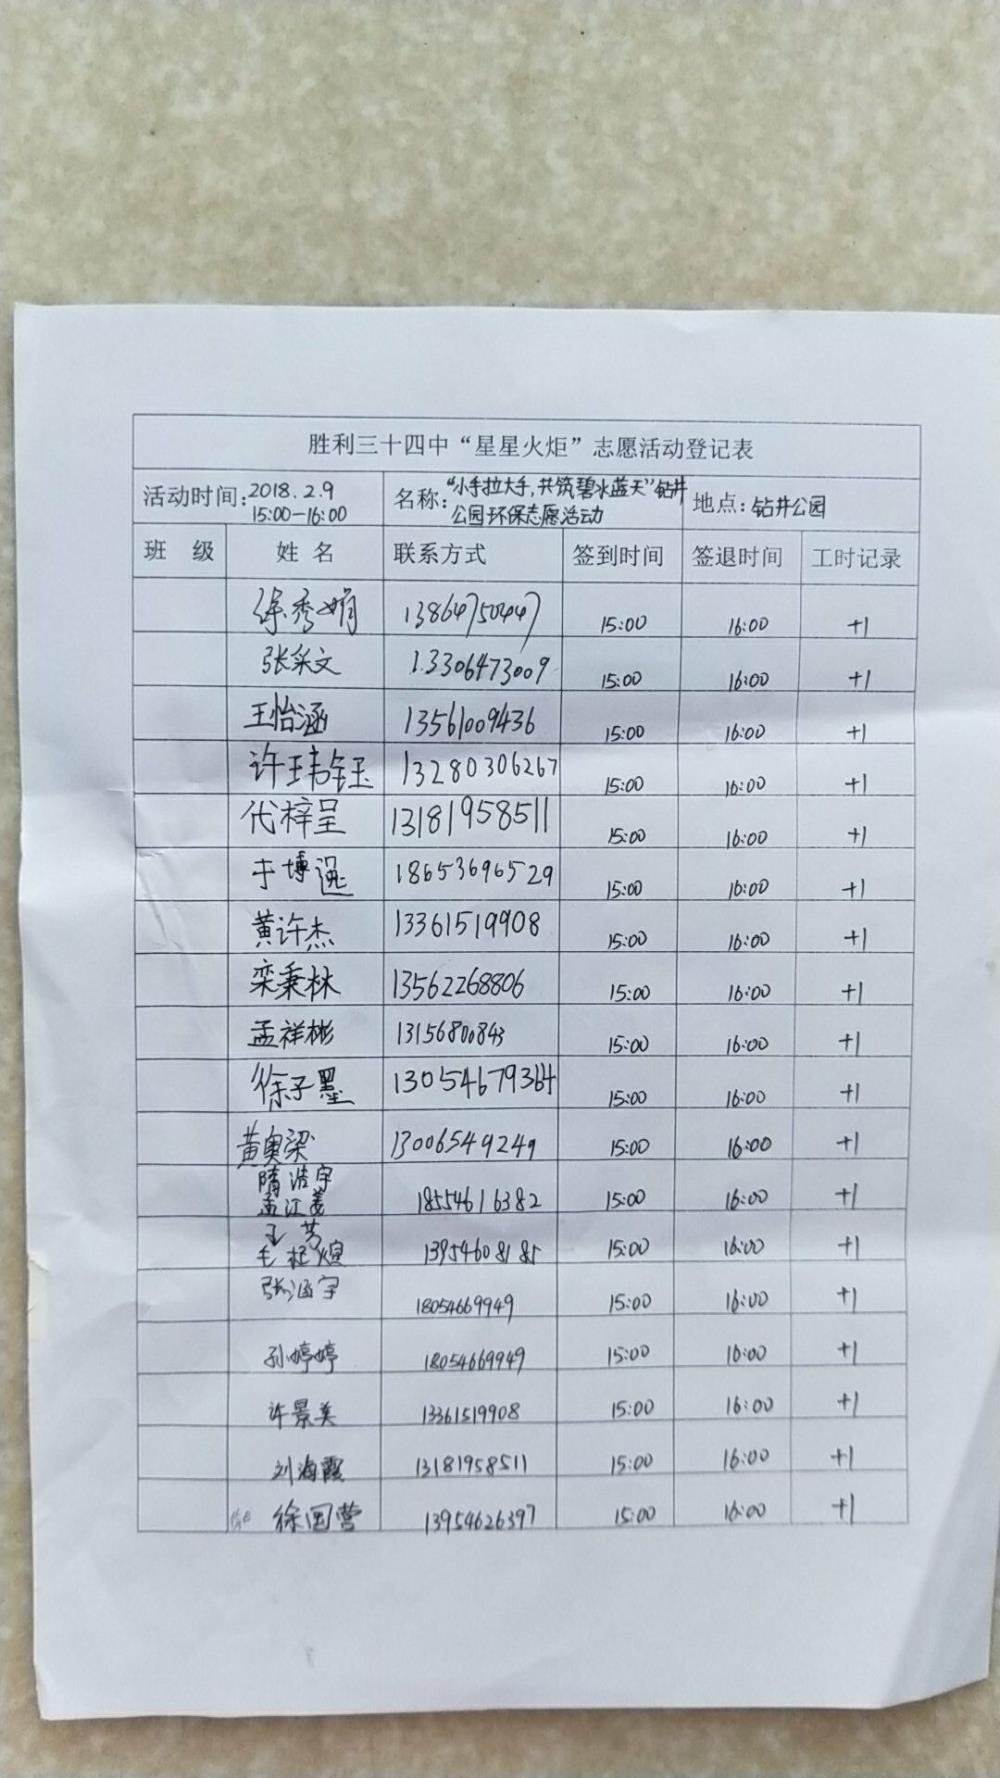 胜利三十四中“星星火炬”志愿活动登记表
活动时间:2018.2.9 15:00-16:00 名称:“小手拉大手,共筑碧水蓝天”钻井公园环保志愿活动 地点:钻井公园
班 级 姓 名 联系方式 签到时间 签退时间 工时记录
徐秀娟 13864750447 15:00 16:00 +1
张采文 13306473009 15:00 16:00 +1
王怡涵 13561009436 15:00 16:00 +1
许玮钰 13280306267 15:00 16:00 +1
代梓呈 13181958511 15:00 16:00 +1
于博逸 18653696529 15:00 16:00 +1
黄许杰 13361519908 15:00 16:00 +1
栾秉林 13562268806 15:00 16:00 +1
孟祥彬 13156800843 15:00 16:00 +1
徐子墨 13054679364 15:00 16:00 +1
黄奥梁 13006549249 15:00 16:00 +1
隋浩宇
孟江姜 18554616382 15:00 16:00 +1
王芳
毛煊 13954608185 15:00 16:00 +1
张涵宇 18054669949 15:00 16:00 +1
孙婷婷 18054669949 15:00 16:00 +1
许景美 13361519908 15:00 16:00 +1
刘海霞 13181958511 15:00 16:00 +1
徐国营 13954626397 15:00 16:00 +1